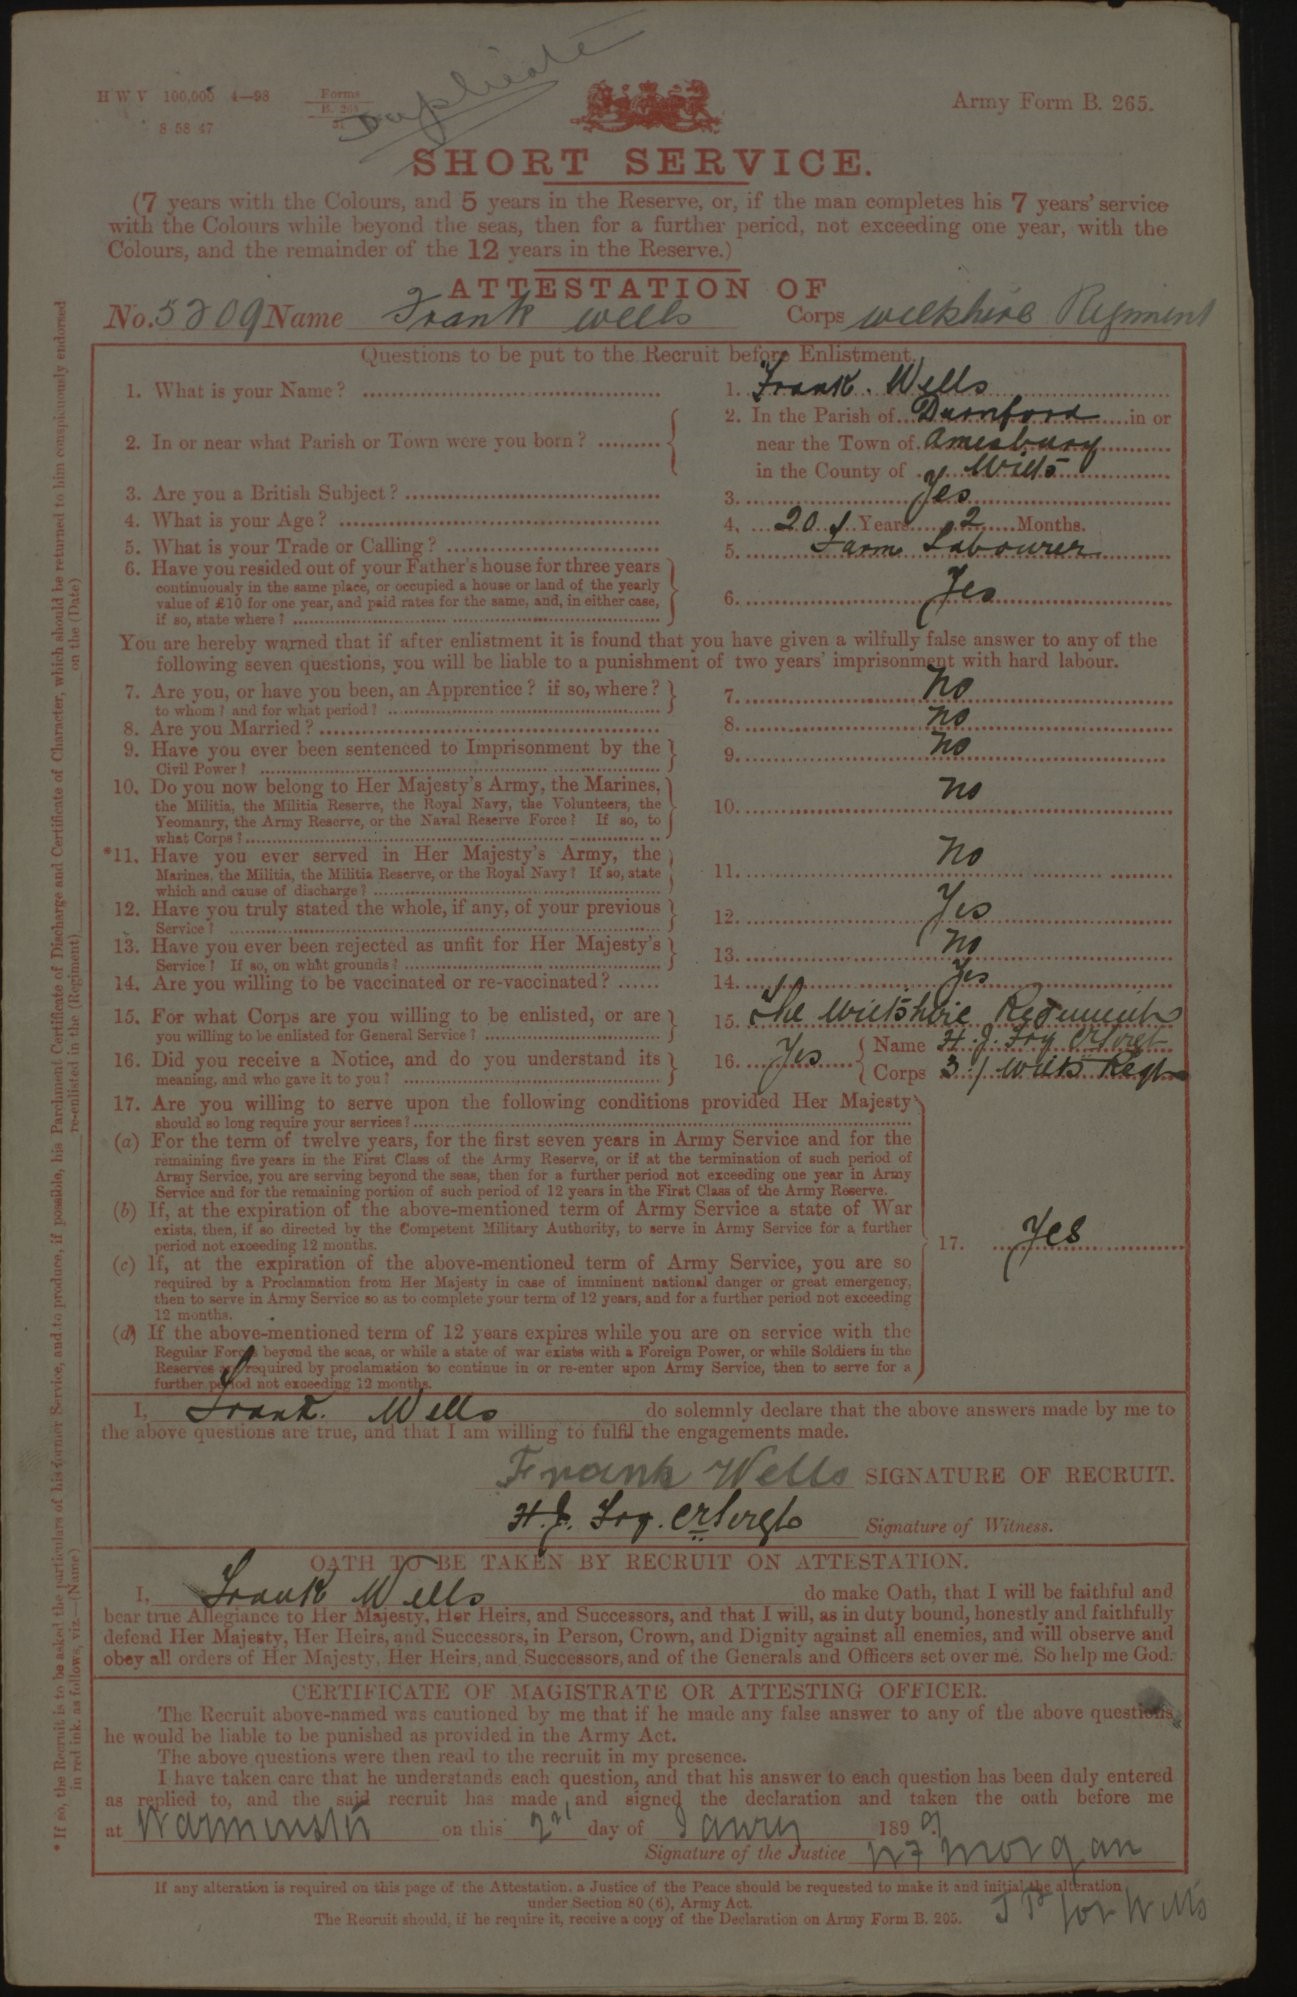 Duplicate
H W V 100,000 4—98 Forms
B. 265
8 58 47
Army Form B. 265.
SHORT SERVICE.
(7 years with the Colours, and 5 years in the Reserve, or, if the man completes his 7 years' service
with the Colours while beyond the seas, then for a further period, not exceeding one year, with the
Colours, and the remainder of the 12 years in the Reserve.)
ATTESTATION OF
No. 5209 Name Frank Wells Corps Wiltshire Regiment
Questions to be put to the Recruit before Enlistment.
1. What is your Name? 1. Frank. Wells
2. In or near what Parish or Town were you born? 2. In the Parish of Durnford in or
near the Town of Amesbury
in the County of Wilts
3. Are you a British Subject? 3. Yes
4. What is your Age? 4. 20 Years 2 Months.
5. What is your Trade or Calling? 5. Farm Labourer
6. Have you resided out of your Father's house for three years
continuously in the same place, or occupied a house or land of the yearly
value of £10 for one year, and paid rates for the same, and, in either case,
if so, state where? 6. Yes
You are hereby warned that if after enlistment it is found that you have given a wilfully false answer to any of the
following seven questions, you will be liable to a punishment of two years' imprisonment with hard labour.
7. Are you, or have you been, an Apprentice? if so, where? 7. No
to whom? and for what period?
8. Are you Married? 8. No
9. Have you ever been sentenced to Imprisonment by the 9. No
Civil Power?
10. Do you now belong to Her Majesty's Army, the Marines,
the Militia, the Militia Reserve, the Royal Navy, the Volunteers, the
Yeomanry, the Army Reserve, or the Naval Reserve Force? If so, to
what Corps? 10. No
*11. Have you ever served in Her Majesty's Army, the
Marines, the Militia, the Militia Reserve, or the Royal Navy? If so, state
which and cause of discharge? 11. No
12. Have you truly stated the whole, if any, of your previous
Service? 12. Yes
13. Have you ever been rejected as unfit for Her Majesty's
Service? If so, on what grounds? 13. No
14. Are you willing to be vaccinated or re-vaccinated? 14. Yes
15. For what Corps are you willing to be enlisted, or are
you willing to be enlisted for General Service? 15. The Wiltshire Regiment
16. Did you receive a Notice, and do you understand its
meaning, and who gave it to you? 16. Yes Name H. J. Foy Cr Sergt
Corps 3/ Wilts Regt
17. Are you willing to serve upon the following conditions provided Her Majesty
should so long require your services?
(a) For the term of twelve years, for the first seven years in Army Service and for the
remaining five years in the First Class of the Army Reserve, or if at the termination of such period of
Army Service, you are serving beyond the seas, then for a further period not exceeding one year in Army
Service and for the remaining portion of such period of 12 years in the First Class of the Army Reserve.
(b) If, at the expiration of the above-mentioned term of Army Service a state of War
exists, then, if so directed by the Competent Military Authority, to serve in Army Service for a further
period not exceeding 12 months.
17. Yes
(c) If, at the expiration of the above-mentioned term of Army Service, you are so
required by a Proclamation from Her Majesty in case of imminent national danger or great emergency,
then to serve in Army Service so as to complete your term of 12 years, and for a further period not exceeding
12 months.
(d) If the above-mentioned term of 12 years expires while you are on service with the
Regular Forces beyond the seas, or while a state of war exists with a Foreign Power, or while Soldiers in the
Reserves are required by proclamation to continue in or re-enter upon Army Service, then to serve for a
further period not exceeding 12 months.
I, Frank. Wells do solemnly declare that the above answers made by me to
the above questions are true, and that I am willing to fulfil the engagements made.
Frank Wells SIGNATURE OF RECRUIT.
H. J. Foy. Cr Sergt Signature of Witness.
OATH TO BE TAKEN BY RECRUIT ON ATTESTATION.
I, Frank Wells do make Oath, that I will be faithful and
bear true Allegiance to Her Majesty, Her Heirs, and Successors, and that I will, as in duty bound, honestly and faithfully
defend Her Majesty, Her Heirs, and Successors, in Person, Crown, and Dignity against all enemies, and will observe and
obey all orders of Her Majesty, Her Heirs, and Successors, and of the Generals and Officers set over me. So help me God.
CERTIFICATE OF MAGISTRATE OR ATTESTING OFFICER.
The Recruit above-named was cautioned by me that if he made any false answer to any of the above questions
he would be liable to be punished as provided in the Army Act.
The above questions were then read to the recruit in my presence.
I have taken care that he understands each question, and that his answer to each question has been duly entered
as replied to, and the said recruit has made and signed the declaration and taken the oath before me
at Warminster on this 2nd day of 1899
Signature of the Justice Morgan
J P for Wilts
If any alteration is required on this page of the Attestation, a Justice of the Peace should be requested to make it and initial the alteration
under Section 80 (6), Army Act.
The Recruit should, if he require it, receive a copy of the Declaration on Army Form B. 205.
* If so, the Recruit is to be asked the particulars of his former Service, and to produce, if possible, his Parchment Certificate of Discharge and Certificate of Character, which should be returned to him conspicuously endorsed
in red ink, as follows, viz.—(Name) re-enlisted in the (Regiment) on the (Date)